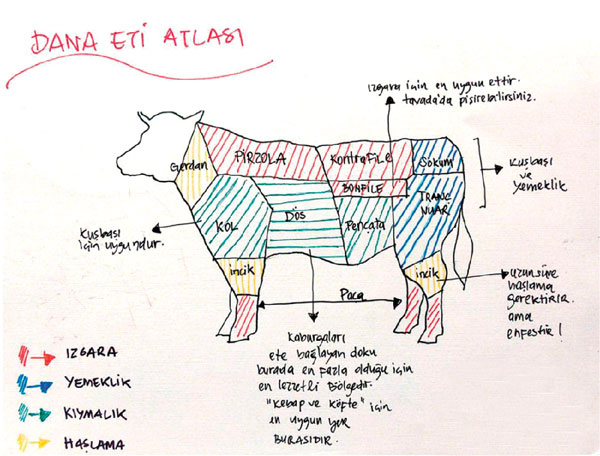 DANA ETİ ATLASI
Izgara için en uygun ettir.
tavada'da pişirebilirsiniz.
Gerdan
PİRZOLA
Kontrafile
Sokum
BONFİLE
TRANÇ
NUAR
Kuşbaşı
ve
yemeklik
KOL
DÖŞ
Pencata
Kuşbaşı
için uygundur.
incik
incik
Paça
uzun süre
haşlama
gerektirir
ama
enfestir!
Kaburgaları
ete bağlayan doku
burada en fazla olduğu için
en lezzetli bölgedir.
"Kebap ve köfte" için
en uygun yer
BURASIDIR.
IZGARA
YEMEKLİK
KIYMALIK
HAŞLAMA